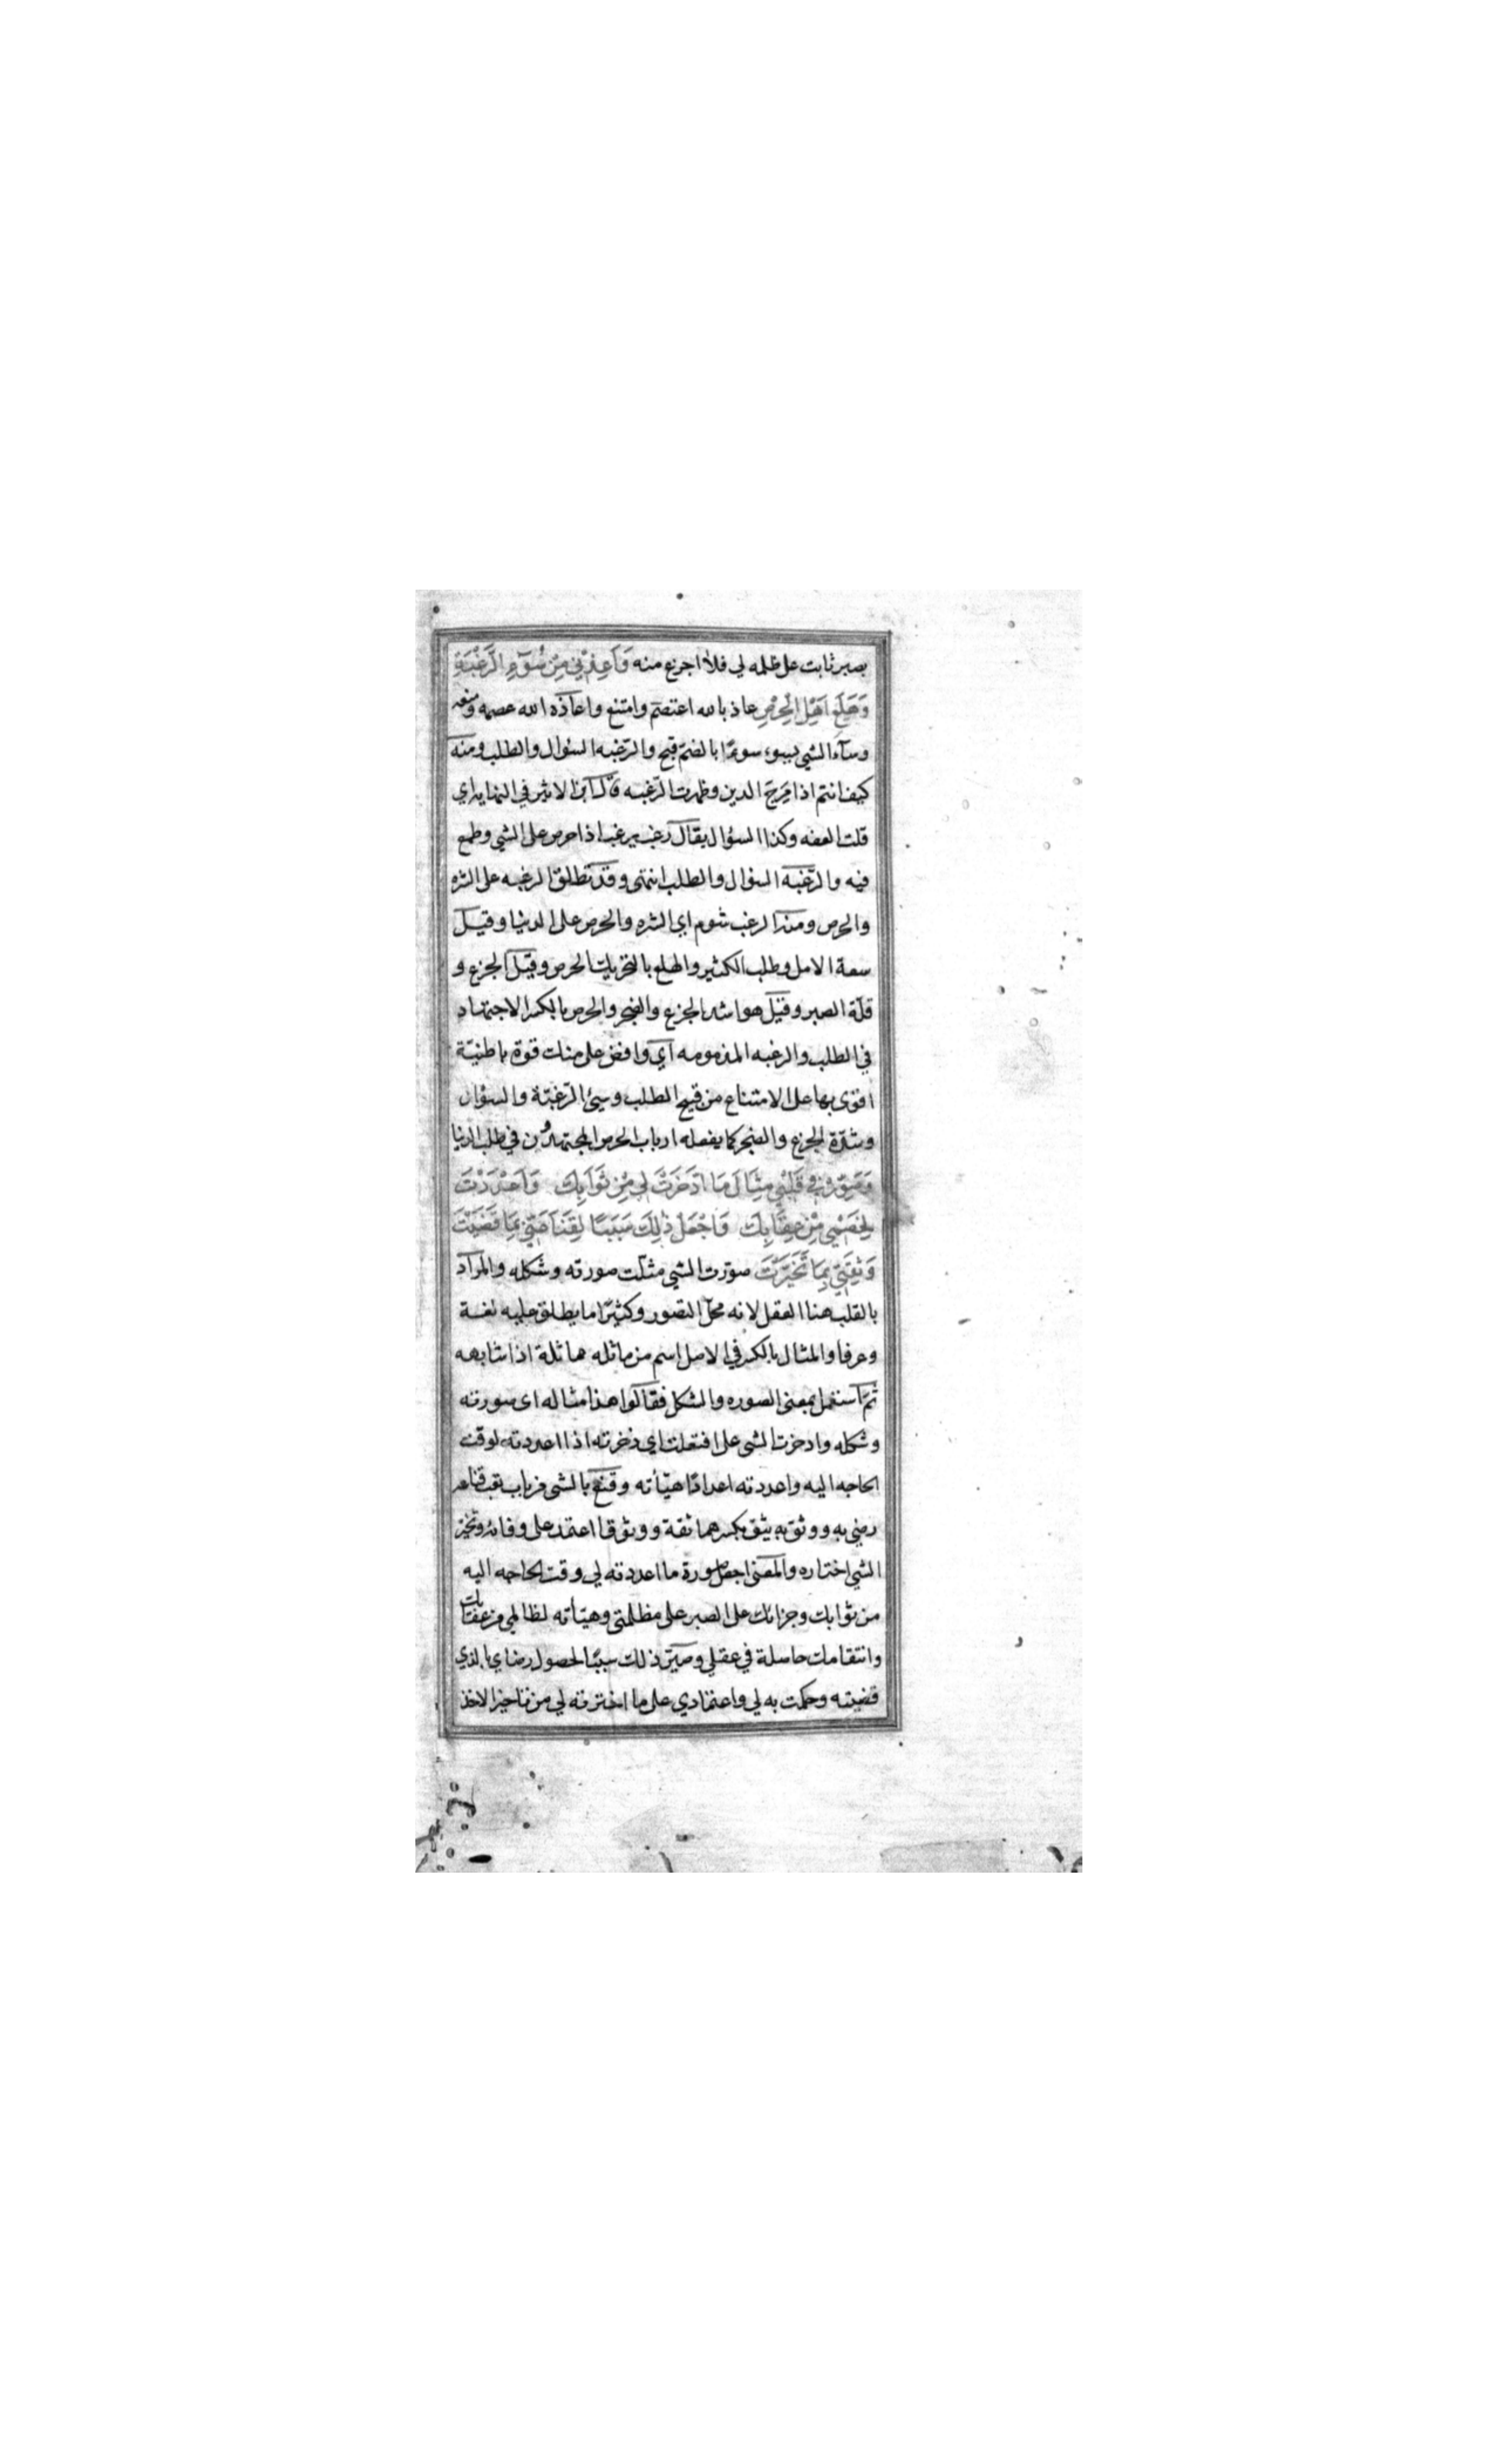 بصبر ثابت على ظلمه لي فلا اجزع منه وَاَعِذْنِي مِنْ سُوٓءِ الرَّغْبَةِ
وَهَلَعِ اَهْلِ الْحِرْصِ عاذ بالله اعتصم وامتنع واعاذه الله عصمه ومنعه
وسآء الشي يسوء سوءًا بالضم قبح والرغبه السؤال والطلب ومنه
كيف انتم اذا مرج الدين وظهرت الرغبه قال ابن الاثير في النهايه اي
قلت العفه وكذا السؤال يقال رغب يرغب اذا حرص على الشي وطمع
فيه والرّغبة السؤال والطلب انتهى وقد تطلق الرغبه على الشره
والحرص ومنه الرغب شوم اي الشره والحرص على الدنيا وقيل
سعة الامل وطلب الكثير والهلع بالتحريك الحرص وقيل الجزع و
قلّة الصبر وقيل هو اشد الجزع والضجر والحرص بالكسر الاجتهاد
في الطلب والرغبه المذمومه اي وافض على منك قوة باطنيّة
اقوى بها على الامتناع من قبيح الطلب وسيئ الرّغبة والسؤال
وشدّة الجزع والضجر كما يفعله ارباب الحرص المجتهدون في طلب الدنيا
وَصَوِّرْ فِي قَلْبِي مِثَالَ مَا ادَّخَرْتَ لِي مِنْ ثَوَابِكَ وَاَعْدَدْتَ
لِخَصْمِي مِنْ عِقَابِكَ وَاجْعَلْ ذٰلِكَ سَبَبًا لِقَنَاعَتِي بِمَا قَضَيْتَ
وَثِقَتِي بِمَا تَخَيَّرْتَ صوّرت الشي مثلت صورته وشكله والمراد
بالقلب هنا العقل لانه محل التصور وكثيرًا ما يطلق عليه لغة
وعرفا والمثال بالكسر في الاصل اسم من ماثله مماثلة اذا شابهه
ثمّ استعمل بمعنى الصوره والشكل فقالوا هذا مثاله اى صورته
وشكله وادخرت الشى على افتعلت اي ذخرته اذا اعددته لوقت
الحاجه اليه واعددته اعدادًا هيّأته وقنع بالشى من باب تعب قناعه
رضي به ووثق به يثق بكسرهما ثقة ووثوقا اعتمد على وفائه وتخير
الشي اختاره والمعنى اجعل صورة ما اعددته لي وقت الحاجه اليه
من ثوابك وجزائك على الصبر على مظلمتى وهيّأته لظالمي من عقابك
وانتقامك حاصلة في عقلي وصيّر ذلك سببًا لحصول رضاي بالذي
قضيته وحكمت به لي واعتمادي على ما اخترته لي من تاخير الاخذ